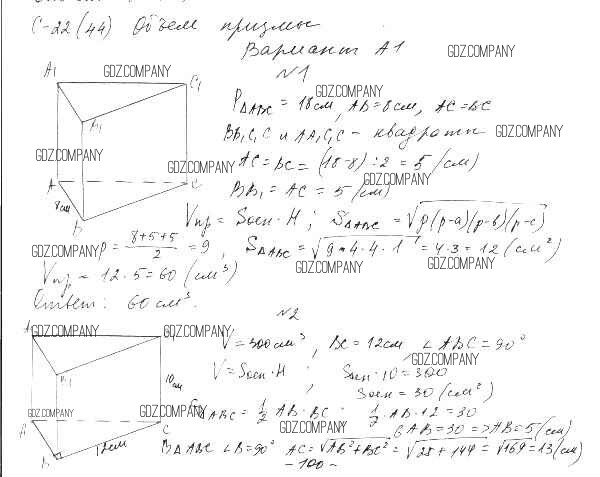 С-22 (44) Объем призмы
Вариант А1
GDZ.COMPANY
№1
A₁
GDZ.COMPANY
C₁
P△ABC = 18см, AB = 8см, AC = BC
GDZ.COMPANY
B₁
BB₁C₁C и AA₁C₁C - квадраты
GDZ.COMPANY
GDZ.COMPANY
GDZ.COMPANY
AC = BC = (18-8):2 = 5 (см)
GDZ.COMPANY
A
C
BB₁ = AC = 5 (см)
8см
B
Vпр = Sосн · H ; S△ABC = √p(p-a)(p-b)(p-c)
GDZ.COMPANY
P = (8+5+5)/2 = 9, S△ABC = √9·4·4·1 = 4·3 = 12 (см²)
GDZ.COMPANY
GDZ.COMPANY
Vпр = 12·5 = 60 (см³)
Ответ: 60 см³.
№2
A₁
GDZ.COMPANY
C₁
GDZ.COMPANY
V = 300см³, BC = 12см ∠ABC = 90°
GDZ.COMPANY
B₁
10см
V = Sосн · H ; Sосн · 10 = 300
Sосн = 30 (см²)
GDZ.COMPANY
S△ABC = ½ AB · BC ½ · AB · 12 = 30
GDZ.COMPANY
6AB = 30 => AB = 5 (см)
A
C
B
12см
В △ABC ∠B = 90° AC = √AB²+BC² = √25+144 = √169 = 13 (см)
- 100 -